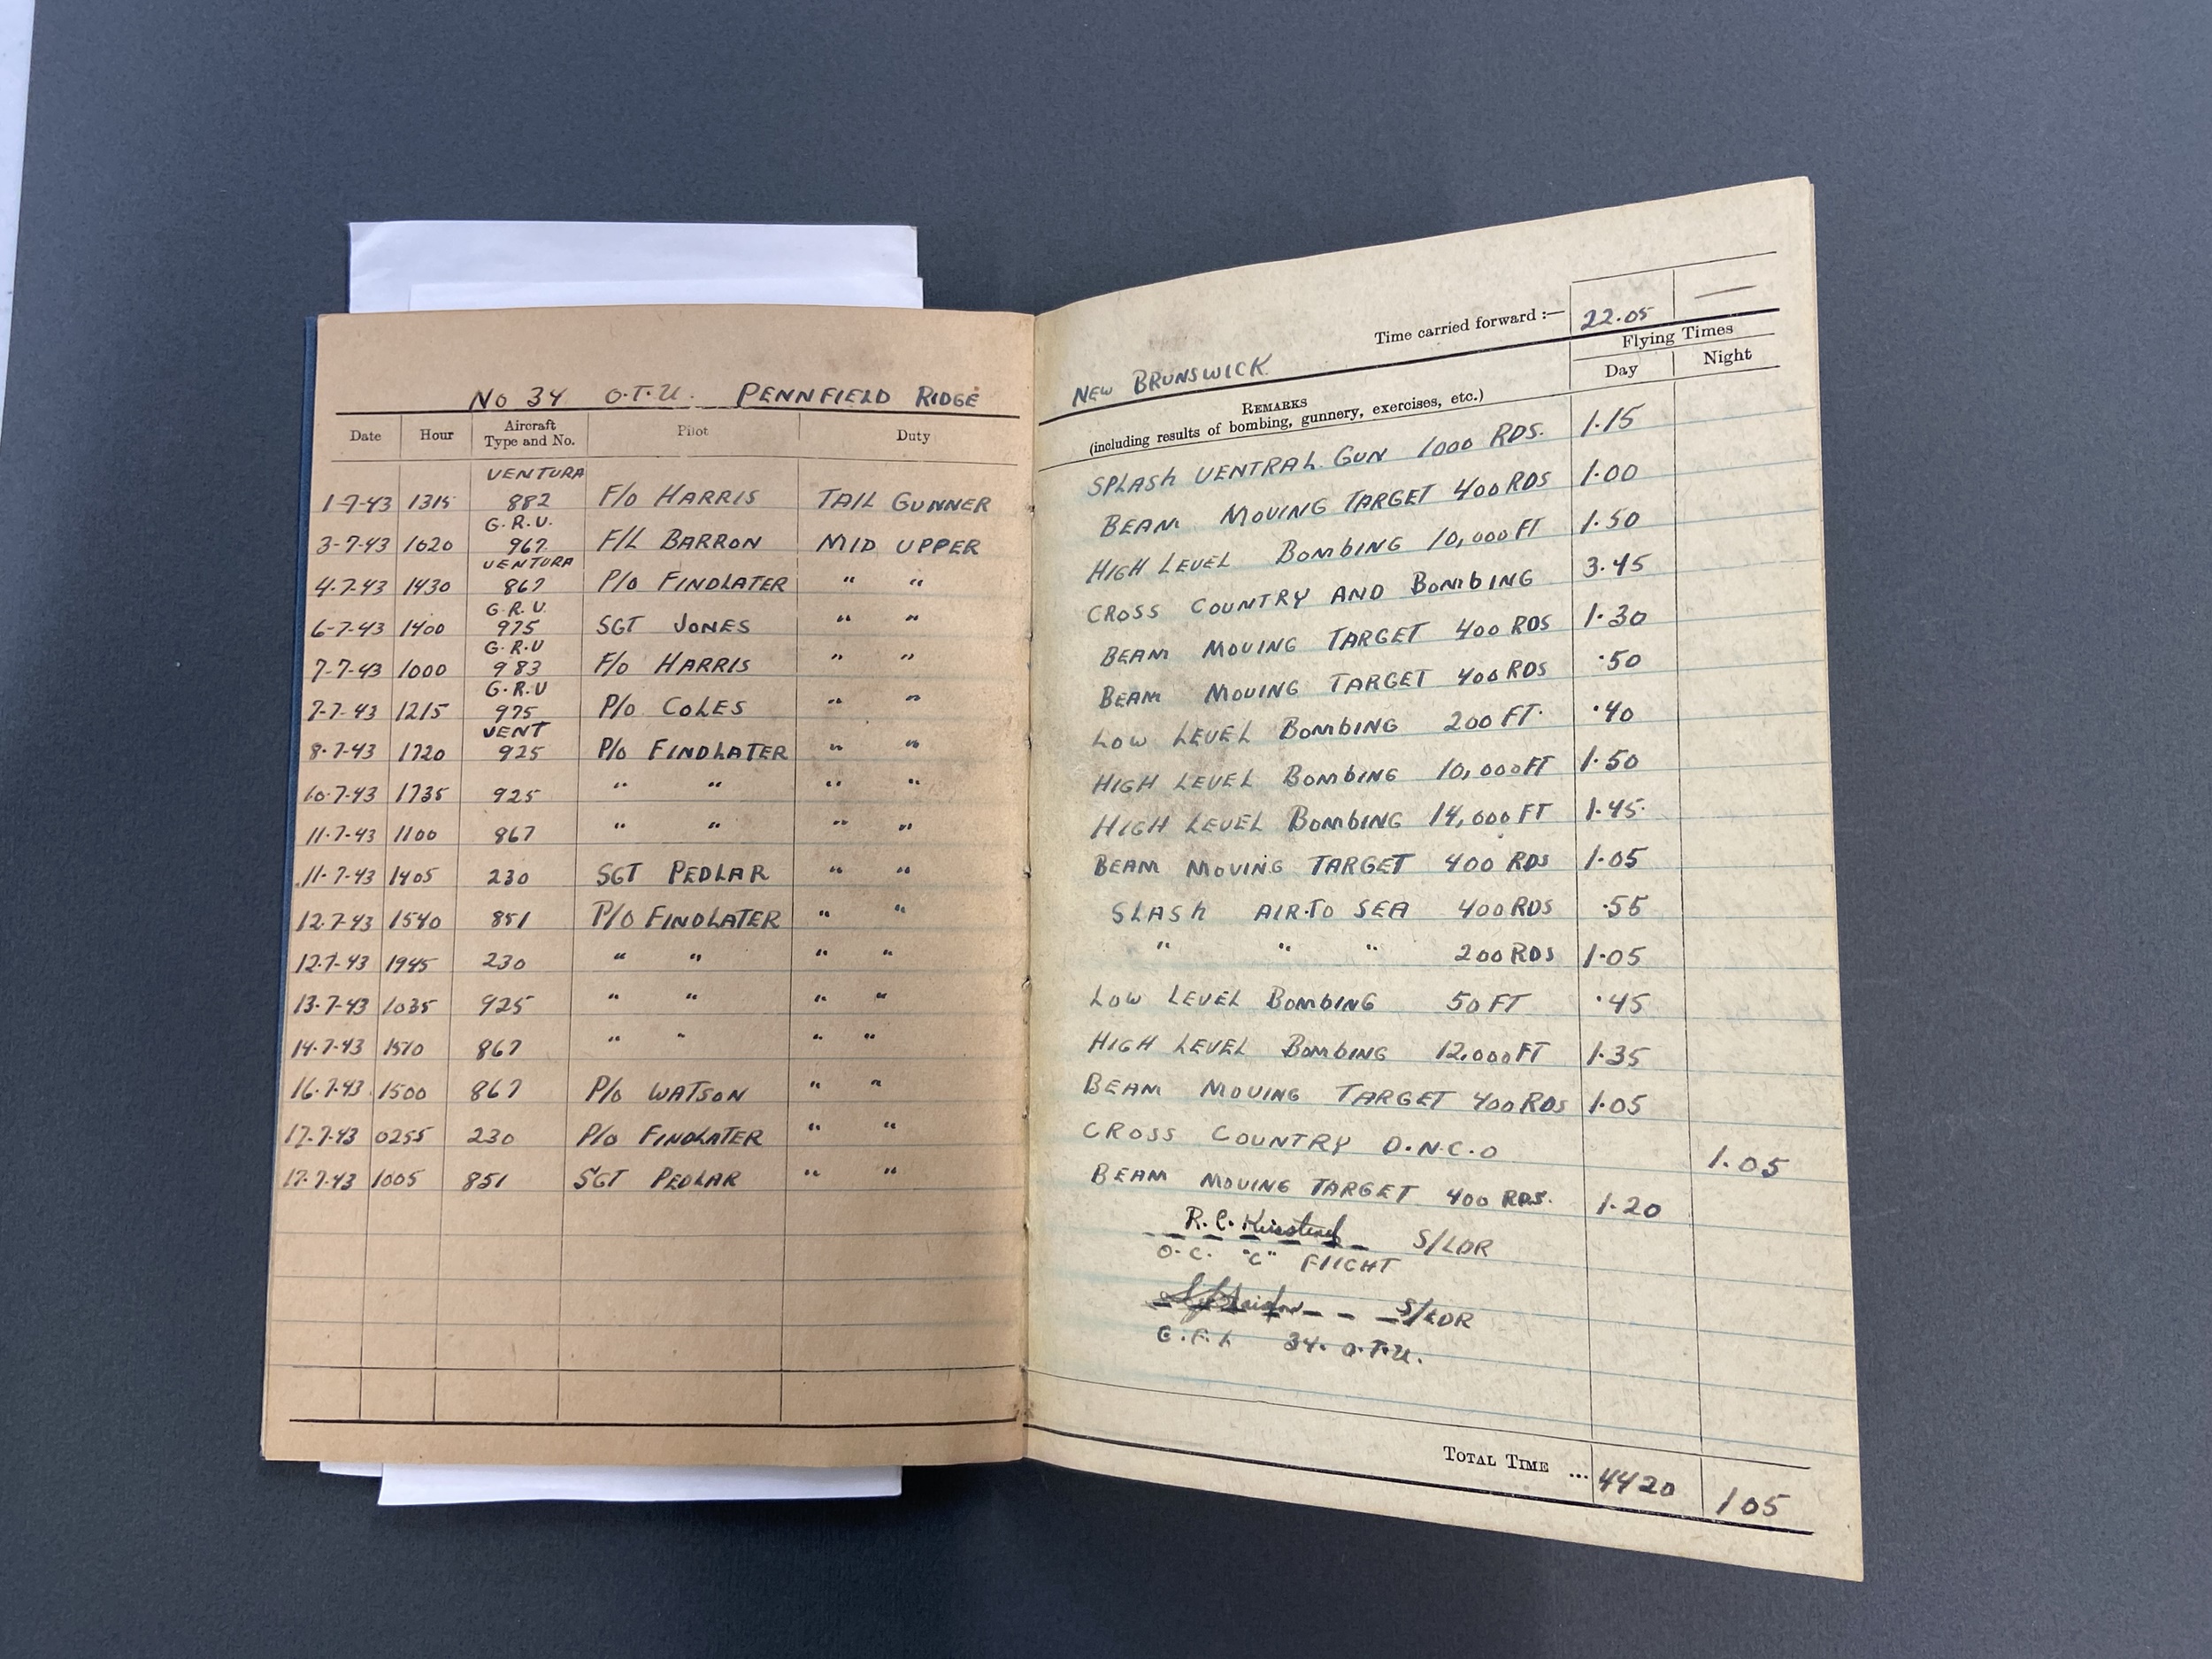 No 34 O.T.U. PENNFIELD RIDGE
Date Hour Aircraft Type and No. Pilot Duty
VENTURA
1-7-43 1315 882 F/O HARRIS TAIL GUNNER
G.R.U.
3-7-43 1020 967 F/L BARRON MID UPPER
VENTURA
4.7-43 1430 867 P/O FINDLATER " "
G.R.U.
6-7-43 1400 975 SGT JONES " "
G.R.U
7-7-43 1000 983 F/O HARRIS " "
G.R.U
7-7-43 1215 975 P/O COLES " "
VENT
8.7-43 1720 925 P/O FINDLATER " "
10.7-43 1735 925 " " " "
11.7-43 1100 867 " " " "
11-7-43 1405 230 SGT PEDLAR " "
12.7-43 1540 851 P/O FINDLATER " "
12.7-43 1945 230 " " " "
13.7-43 1035 925 " " " "
14.7-43 1510 867 " " " "
16.7-43 1500 867 P/O WATSON " "
17.7-43 0255 230 P/O FINDLATER " "
17.7-43 1005 851 SGT PEDLAR " "
Time carried forward :— 22.05 —
NEW BRUNSWICK
Flying Times
REMARKS
(including results of bombing, gunnery, exercises, etc.)
Day Night
SPLASH VENTRAL GUN 1000 RDS. 1.15
BEAM MOVING TARGET 400 RDS 1.00
HIGH LEVEL BOMBING 10,000 FT 1.50
CROSS COUNTRY AND BOMBING 3.45
BEAM MOVING TARGET 400 RDS 1.30
BEAM MOVING TARGET 400 RDS .50
LOW LEVEL BOMBING 200 FT. .40
HIGH LEVEL BOMBING 10,000 FT 1.50
HIGH LEVEL BOMBING 14,000 FT 1.45
BEAM MOVING TARGET 400 RDS 1.05
SLASH AIR-TO SEA 400 RDS .55
" " " 200 RDS 1.05
LOW LEVEL BOMBING 50 FT .45
HIGH LEVEL BOMBING 12,000 FT 1.35
BEAM MOVING TARGET 400 RDS 1.05
CROSS COUNTRY D.N.C.O 1.05
BEAM MOVING TARGET 400 RDS. 1.20
R.C. S/LDR
O.C. "C" FLIGHT
S/LDR
34. O.T.U.
TOTAL TIME ... 44 20 1 05